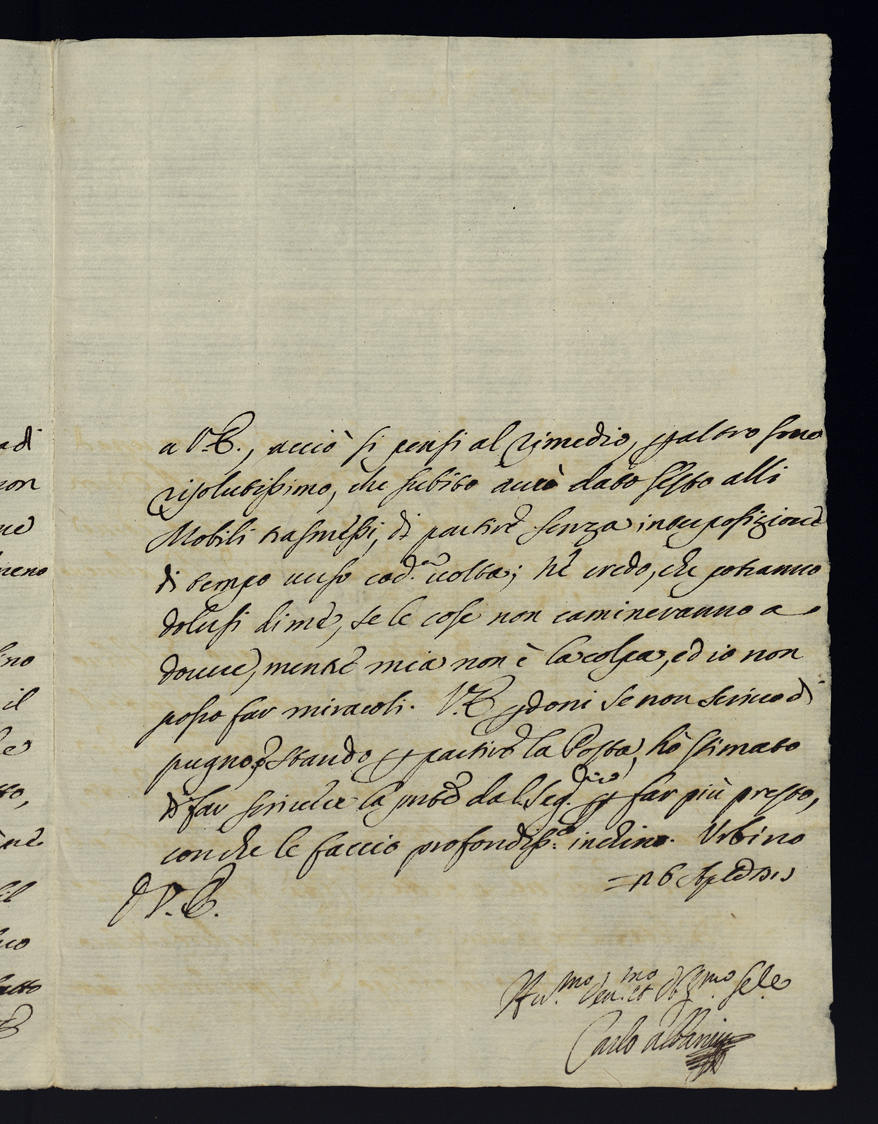 adi
non
ne
meno
fino
il
le
to,
il
a V.E., acciò si pensi al rimedio, p altro sono
risolutissimo, che subito avrò dato sesto alli
Mobili trasmessi, di partire senza interposizione
di tempo verso cod.a volta; Nè credo, che potranno
dolersi di me, se le cose non camineranno a
dovere, mentre mia non è la colpa, ed io non
posso far miracoli. V.E. pdoni se non scrivo di
pugno, p stando p partire la Posta, hò stimato
di far scrivere la pnte dal Seg.rio p far più presto,
con che le faccio profondiss.o inchino. Urbino
16 Aple
D V.E.
Hu.mo Dev.mo et Obl.mo Se.le
Carlo Albani